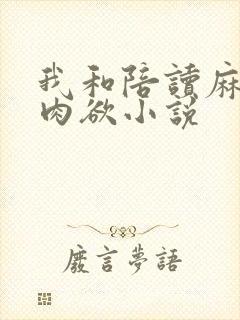 我和陪讀麻
肉欲小說
廢言夢語